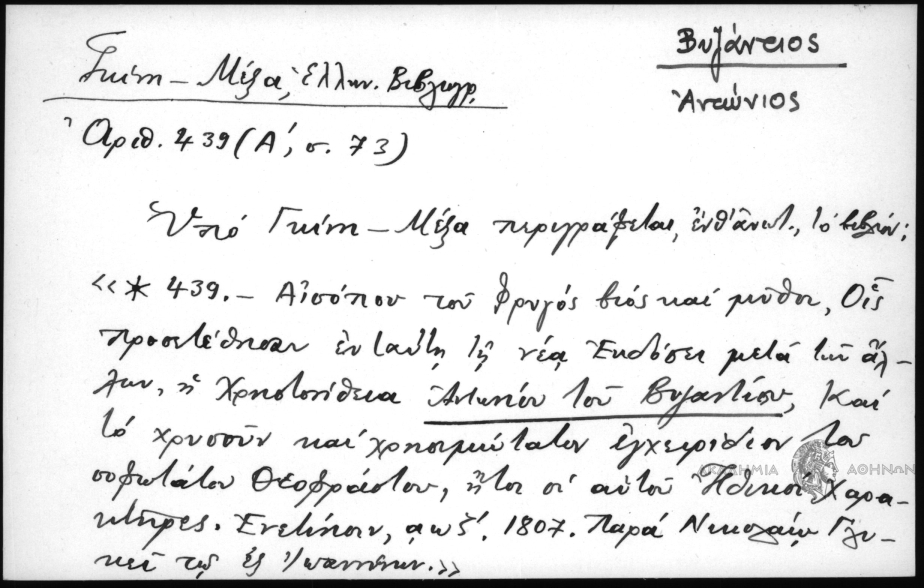 Βυζάντιος
Ἀντώνιος
Γκίνη – Μέξα, Ἑλλην. Βιβλιογρ.
Ἀριθ. 439 (Α΄, σ. 73)
Ὑπό Γκίνη – Μέξα περιγράφεται, ἔνθ' ἀνωτ., τό βιβλίον:
«* 439. – Αἰσώπου τοῦ Φρυγός βιός καί μῦθοι, Οἷς
προσετέθησαν ἐν ταύτῃ τῇ νέᾳ Ἐκδόσει μετά τῶν ἄλ-
λων, ἡ Χρηστοήθεια Ἀντωνίου τοῦ Βυζαντίου, Καί
τό χρυσοῦν καί χρησιμώτατον ἐγχειρίδιον τοῦ
σοφωτάτου Θεοφράστου, ἤτοι οἱ αὐτοῦ Ἠθικοί Χαρα-
κτῆρες. Ἐνετίησιν, αωζ΄. 1807. Παρά Νικολάῳ Γλυ-
κεῖ τῷ ἐξ Ἰωαννίνων.»
ΑΚΑΔΗΜΙΑ ΑΘΗΝΩΝ